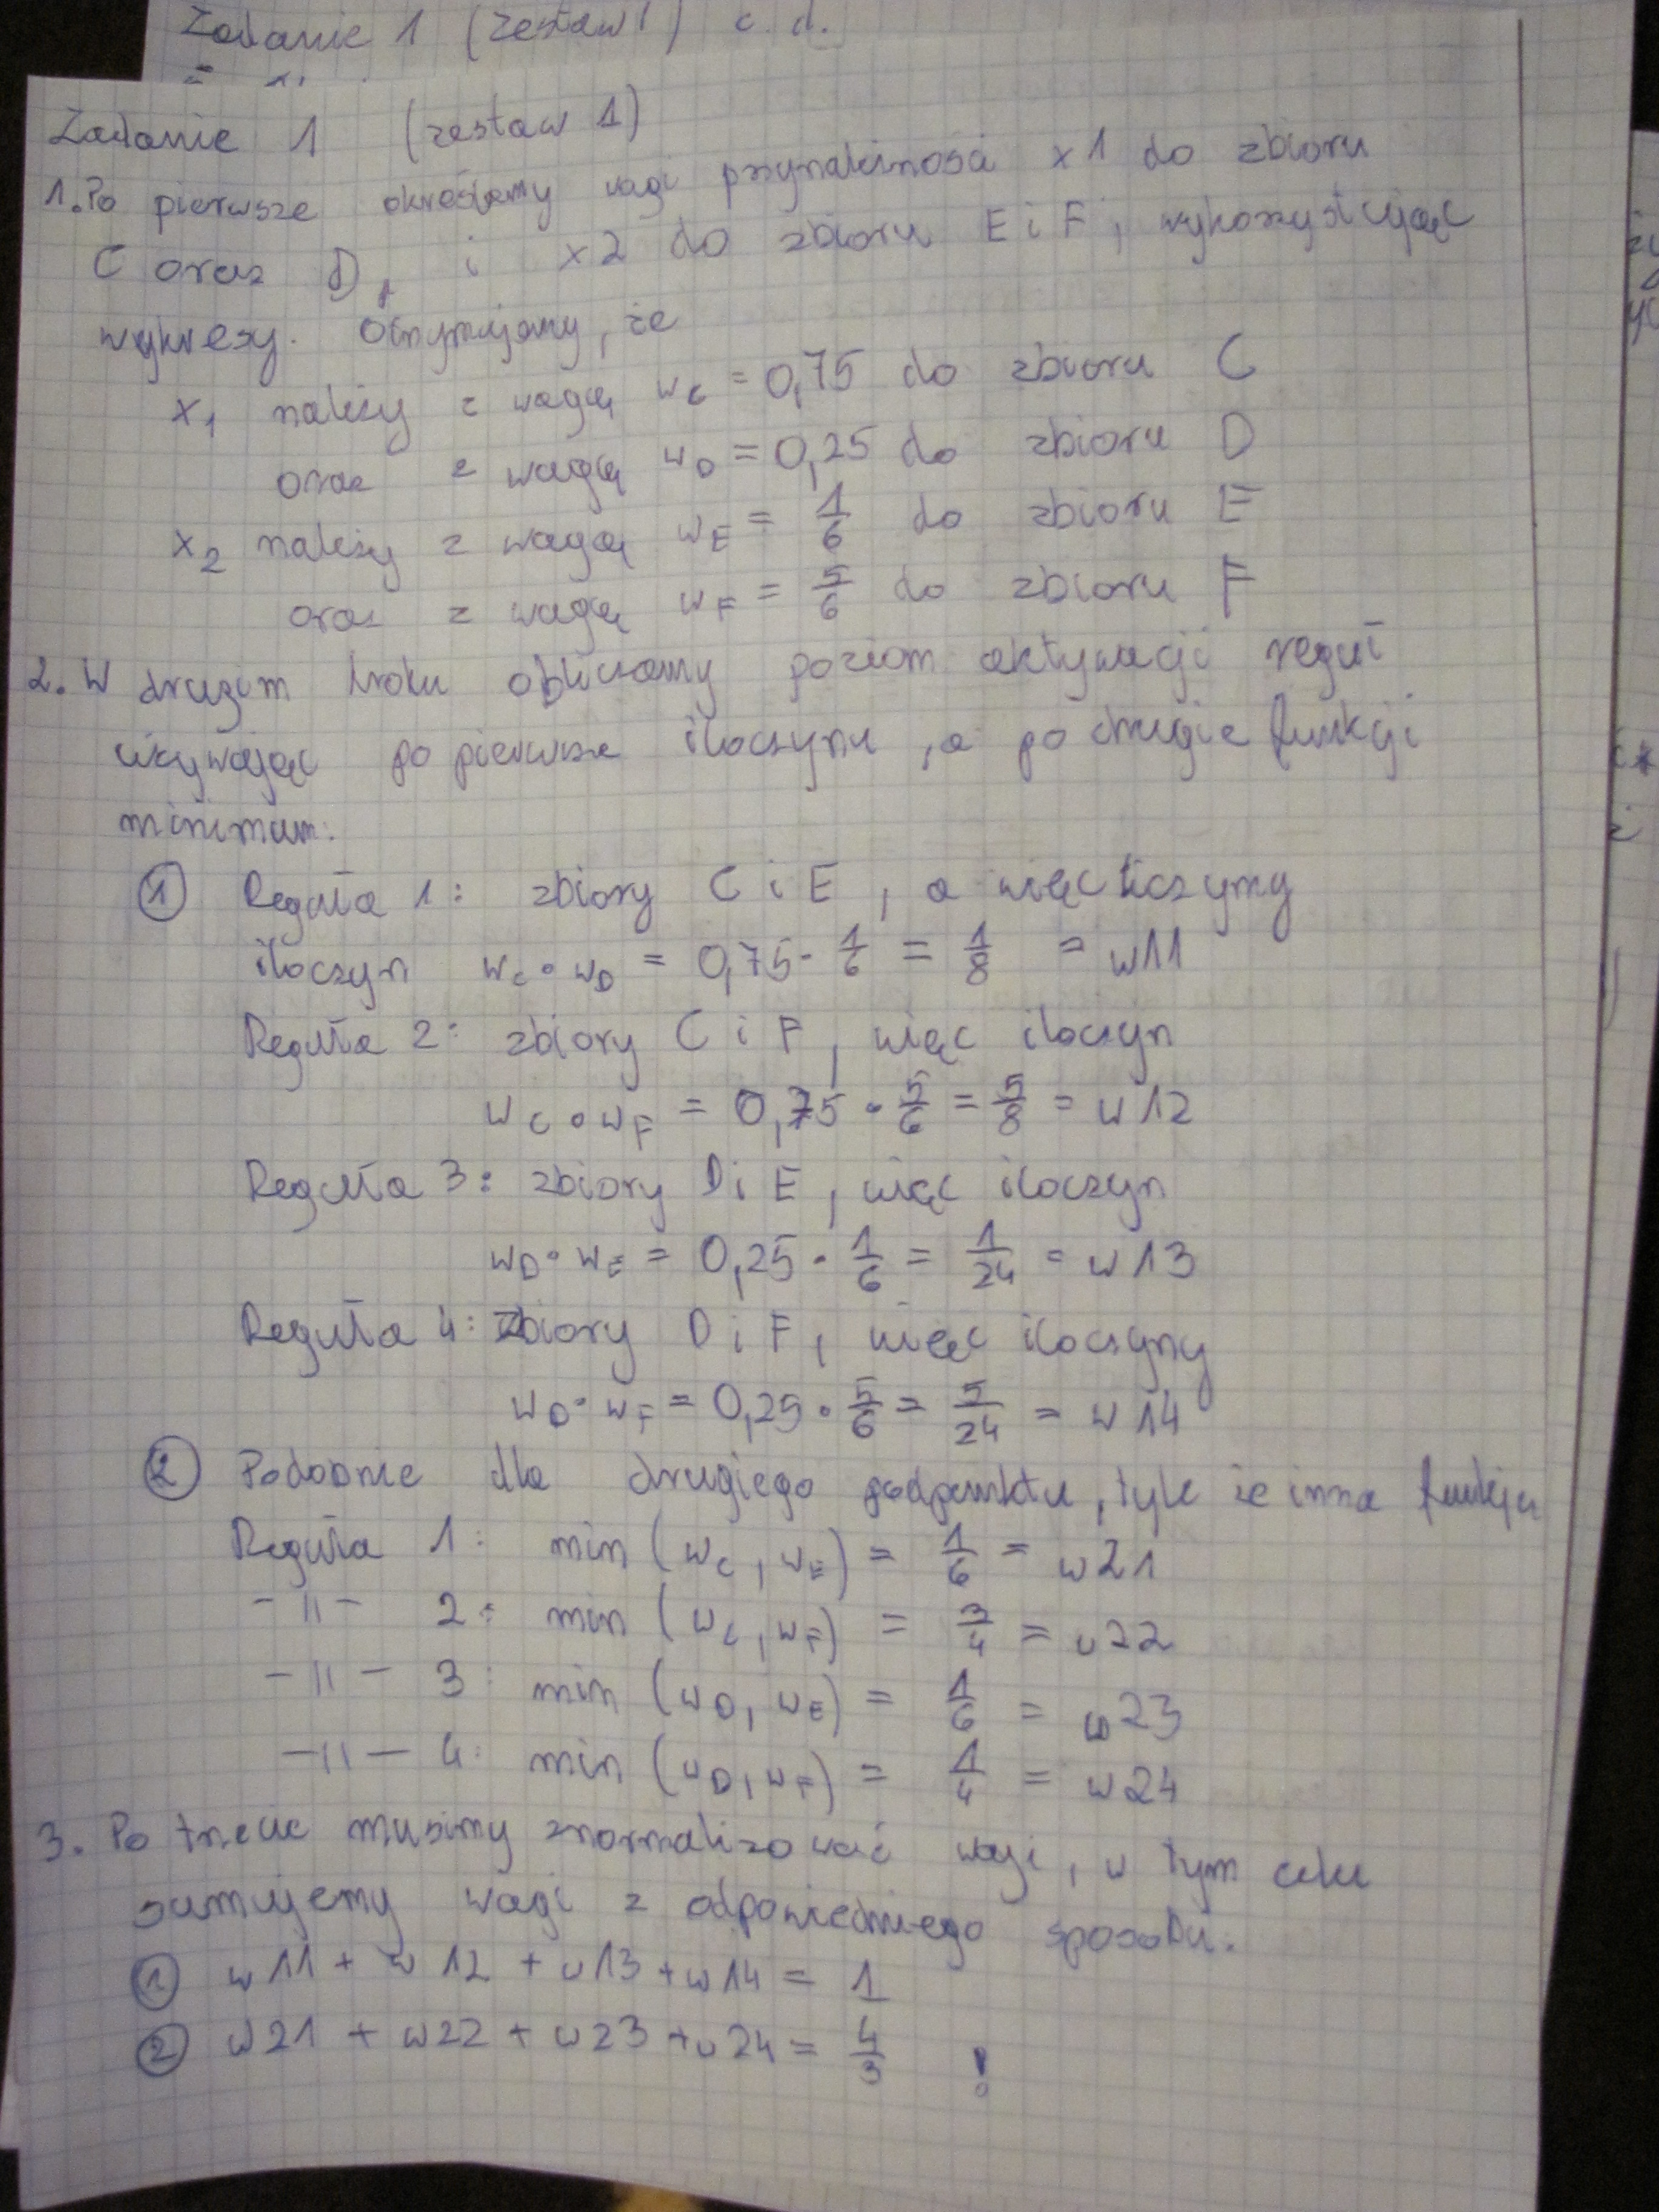 Zadanie 1 (zestaw 1) c.d.
Zadanie 1 (zestaw 1)
1. Po pierwsze określamy wagi przynależności x1 do zbioru
C oraz D, i x2 do zbioru E i F, wykorzystując
wykresy. Otrzymujemy, że
x₁ należy z wagą w_C = 0,75 do zbioru C
oraz z wagą w_D = 0,25 do zbioru D
x₂ należy z wagą w_E = 1/6 do zbioru E
oraz z wagą w_F = 5/6 do zbioru F
2. W drugim kroku obliczamy poziom aktywacji reguł
używając po pierwsze iloczynu, a po drugie funkcji
minimum:
① Reguła 1: zbiory C i E, a więc liczymy
iloczyn w_C · w_D = 0,75 · 1/6 = 1/8 = w11
Reguła 2: zbiory C i F, więc iloczyn
w_C · w_F = 0,75 · 5/6 = 5/8 = w12
Reguła 3: zbiory D i E, więc iloczyn
w_D · w_E = 0,25 · 1/6 = 1/24 = w13
Reguła 4: zbiory D i F, więc iloczyny
w_D · w_F = 0,25 · 5/6 = 5/24 = w14
② Podobnie dla drugiego podpunktu, tyle że inna funkcja
Reguła 1: min (w_C, w_E) = 1/6 = w21
-||- 2: min (w_C, w_F) = 3/4 = w22
-||- 3: min (w_D, w_E) = 1/6 = w23
-||- 4: min (w_D, w_F) = 1/4 = w24
3. Po trzecie musimy znormalizować wagi, w tym celu
sumujemy wagi z odpowiedniego sposobu.
① w11 + w12 + w13 + w14 = 1
② w21 + w22 + w23 + w24 = 4/3 !